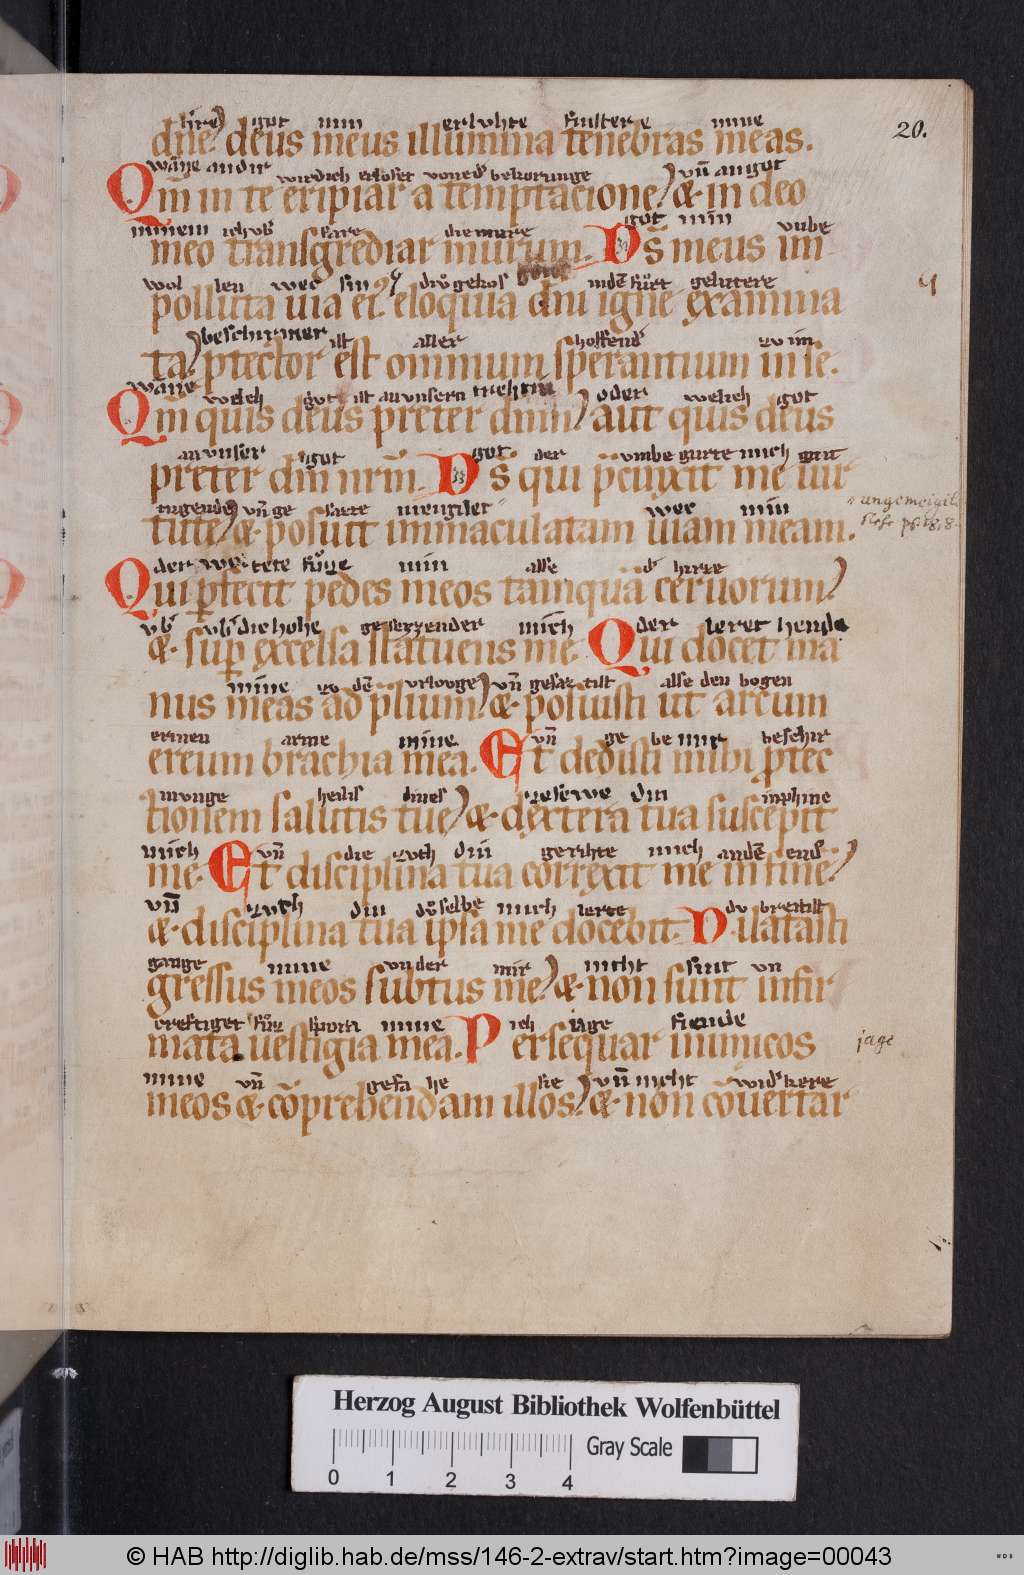 h're got min erluhte finstere mine
20.
dn̄e. deus meus illumina tenebras meas.
wāne an dir wirdich erloset voned' bekorunge vn̄ an got
Qm̄ in te eripiar a temptacione. & in deo
minem ich vb' die mure got min vnbe
meo transgrediar murum. Ds̄ meus im
wol len wec sin gotes inde fv̊rr gelutere
polluta uia ei': eloquia dn̄i igne examina
beschirmer ist aller hoffend' zv im
ta. p̄tector est omnium sperantium in se.
wāne welch got ist an vnsern trehtin oder welich got
Qm̄ quis deus preter dnm̄. aut quis deus
an vnser got got der vmbe gurte mich
preter dm̄ nrm̄. Ds̄ qui p̄cinxit me uir
tugende vn̄ ge sazte wec min
tute. & posuit immaculatam uiam meam.
ungemeigil
der fv̊ze min alse d' hirze
Qui p̄fecit pedes meos tamquā ceruorum.
vb' die hohe gesezzender mich der leret hende
&. sup excelsa statuens me. Qui docet ma
mine zo dē vrlovge vn̄ gesaztist alse den bogen
nus meas ad p̄lium. &. posuisti ut arcum
erinen arme mine vn̄ ge be mir beschir
ereum brachia mea. Et dedisti mihi p̄tec
munge heilis dines zesewe din inphine
tionem salutis tue. &. dextera tua suscepit
mich vn̄ die zvch din gerihte mich anden end'
me. Et disciplina tua correxit me in finē.
vn̄ zvch din selbe mich lerte du breitist
&. disciplina tua ipsa me docebit. D ilatasti
gange mine vnder mir nicht sint vn
gressus meos subtus me. &. non sunt infir
creftiget fv̊z sporn mine ich iage fiende
mata uestigia mea. P ersequar inimicos
jage
mine vn̄ gefa he sie vn̄ nicht wid'kere
meos &. cōprehendam illos. &. non cōuertar
Herzog August Bibliothek Wolfenbüttel
Gray Scale
0 1 2 3 4
© HAB http://diglib.hab.de/mss/146-2-extrav/start.htm?image=00043